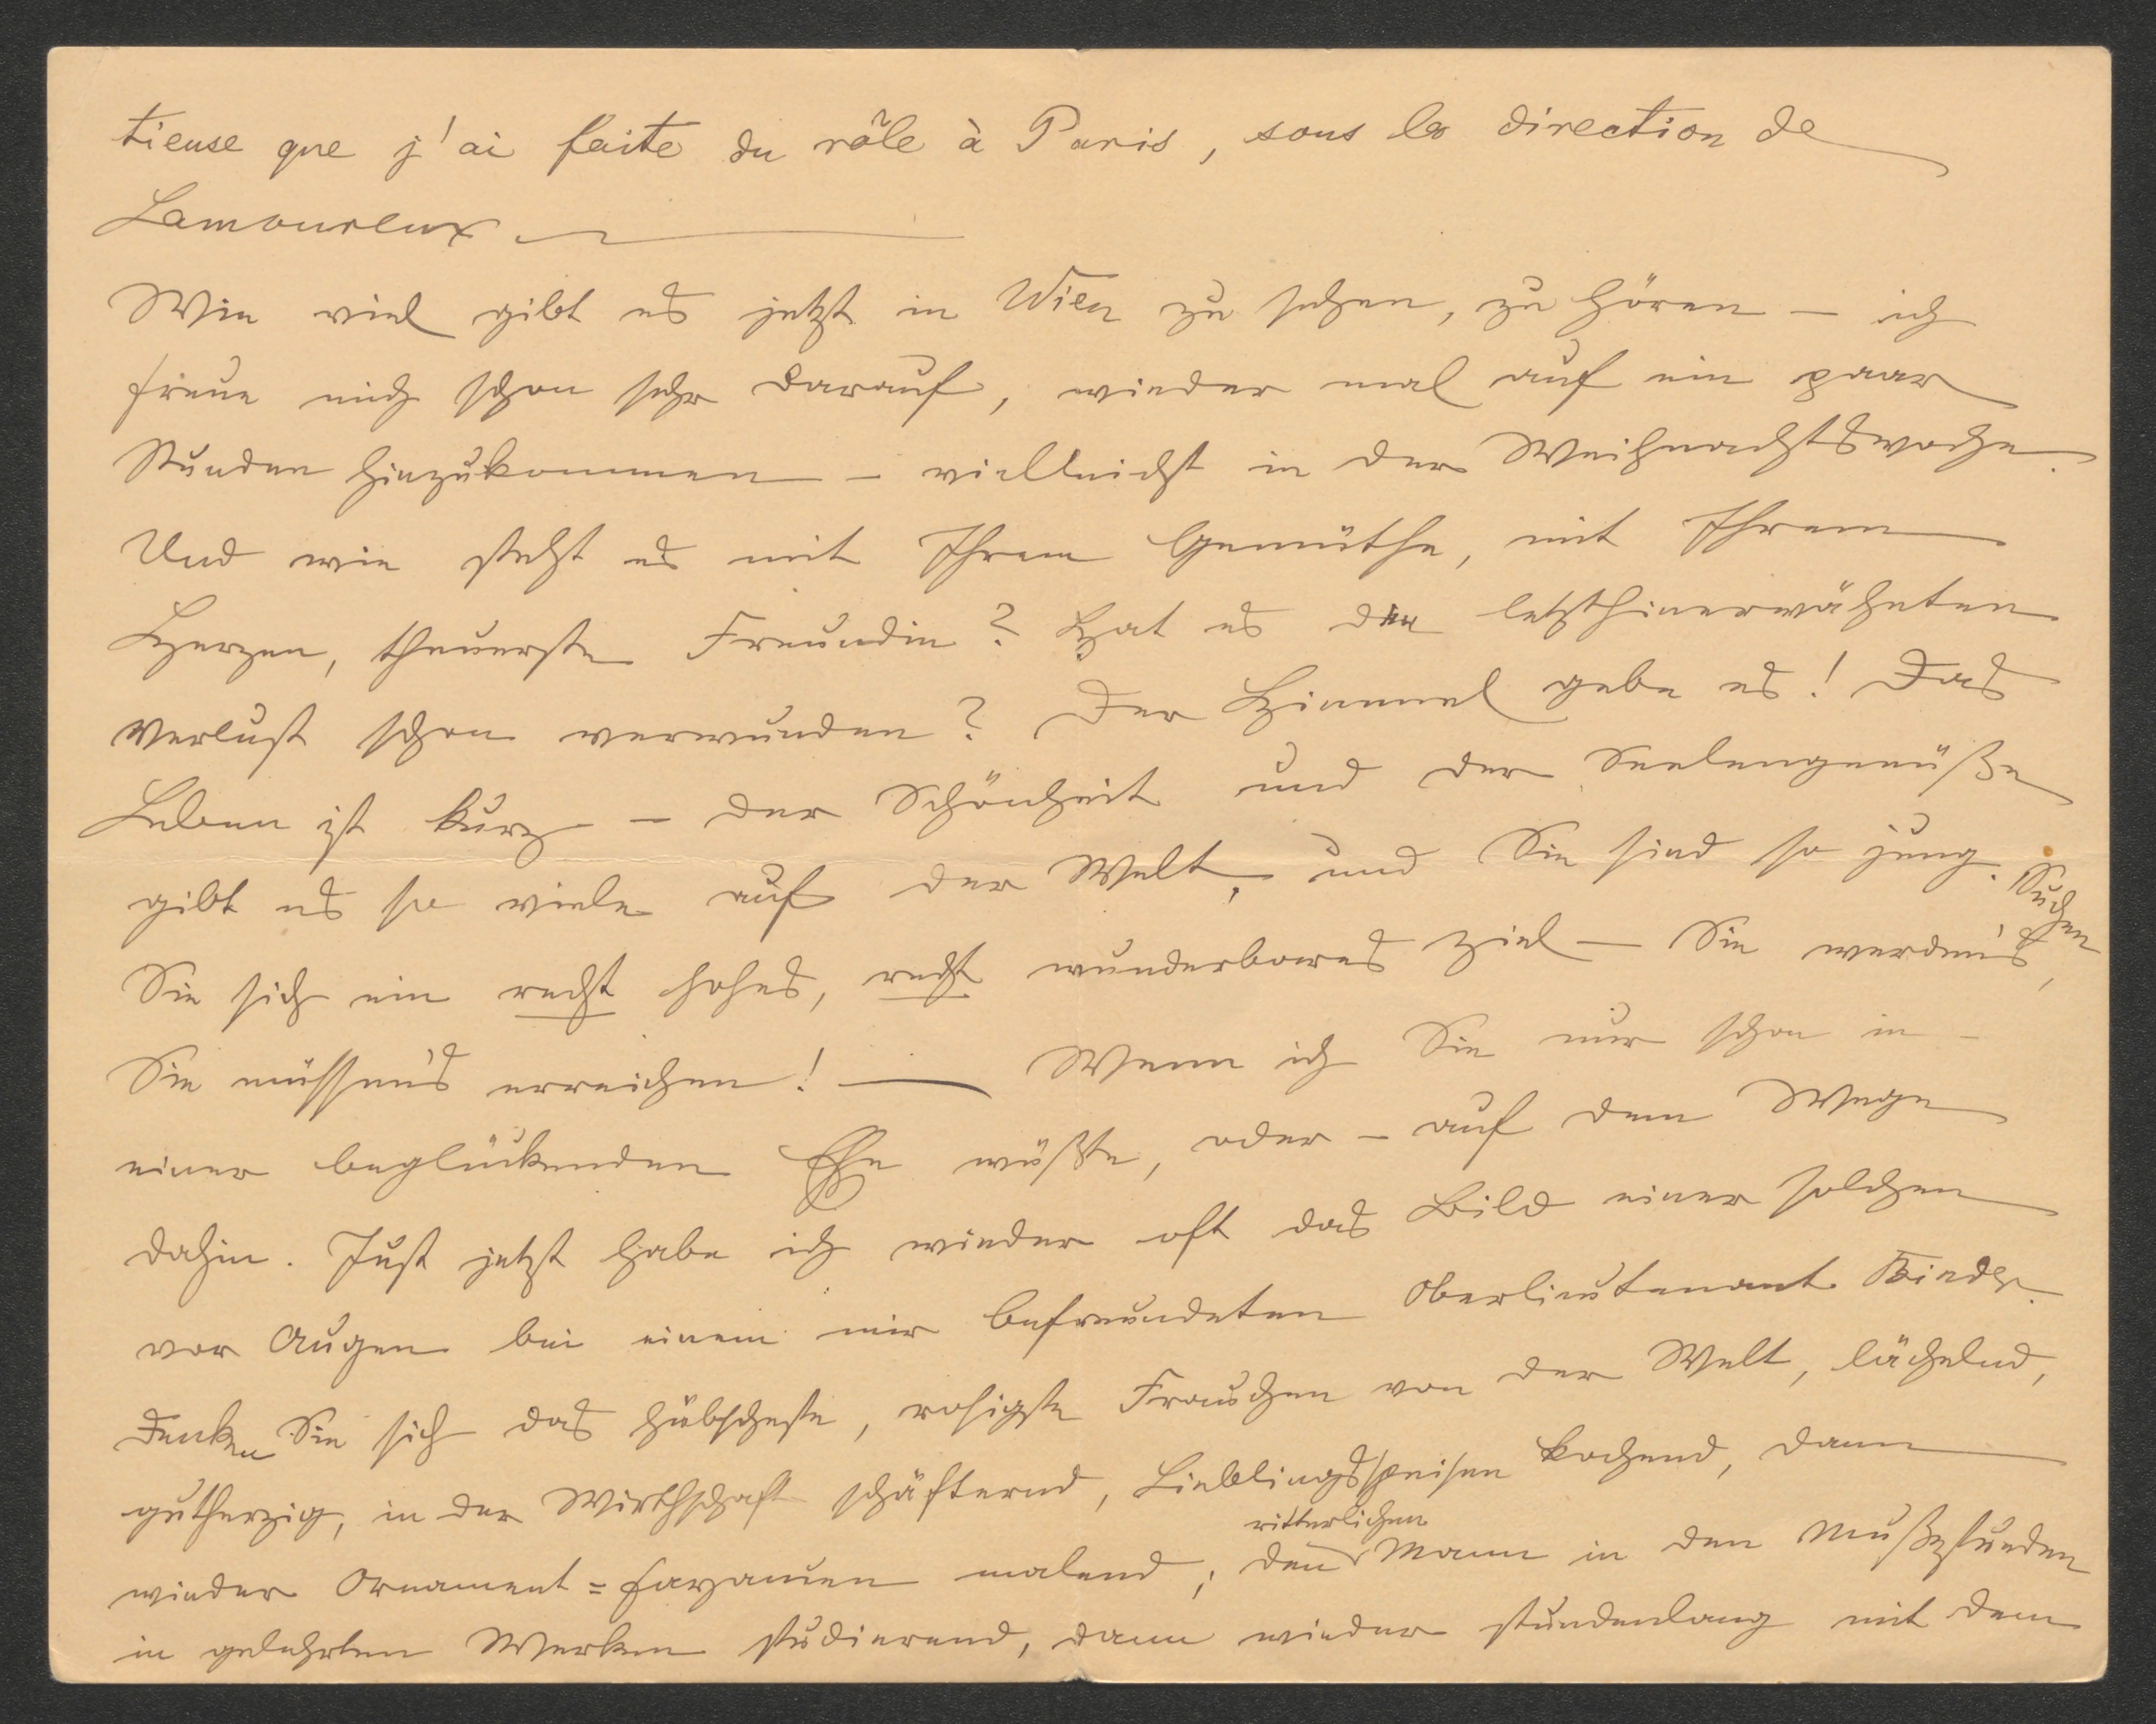 tieuse que j'ai faite du rôle à Paris, sous la direction de
Lamoureux
Wie viel gibt es jetzt in Wien zu sehen, zu hören – ich
freue mich schon sehr darauf, wieder mal auf ein paar
Stunden hinzukommen – vielleicht in der Weihnachtswoche.
Und wie steht es mit Ihrem Gemüthe, mit Ihrem
Herzen, theuerste Freundin? Hat es den letzthinerwähnten
Verlust schon verwunden? Der Himmel gebe es! Das
Leben ist kurz – der Schönheit und der Seelengenüße
gibt es so viele auf der Welt, und Sie sind so jung. Suchen
Sie sich ein recht hohes, recht wunderbares Ziel – Sie werden's,
Sie müssen's erreichen! — Wenn ich Sie nur schon in
einer beglückenden Ehe wüßte, oder – auf dem Wege
dahin. Just jetzt habe ich wieder oft das Bild einer solchen
vor Augen bei einem mir befreundeten Oberlieutenant Binder.
Denken Sie sich das hübscheste, rosigste Frauchen von der Welt, lächelnd,
gutherzig, in der Wirthschaft schäfternd, Lieblingsspeisen kochend, dann
wieder Ornament=Fayancen malend; den ritterlichen Mann in den Mußestunden
in gelehrten Werken studierend, dann wieder stundenlang mit dem